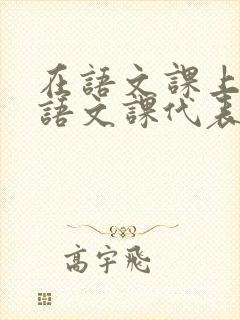 在語文課上
語文課代表
高宇飛